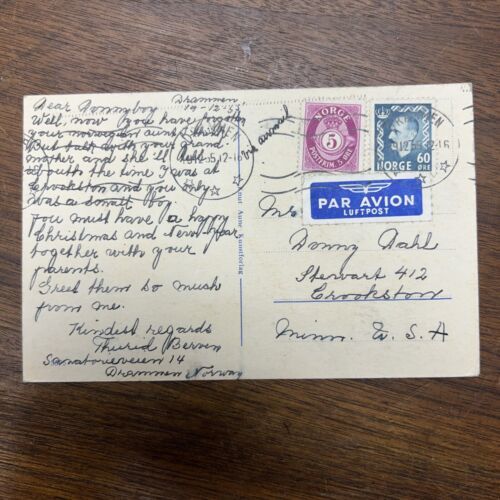 Drammen
19-12-55
Dear Donnyboy
Well, now you have forgotten
your norwegian aunt, I think
But talk with your grand
mother and she'll tell
about the time I was at
Crookston and you only
was a small boy.
You must have a happy
Christmas and New-Year
together with your
parents.
Greet them so much
from me.
Kindest regards
Thurid Berven
Sanatorieveien 14
Drammen Norway
via airmail
NORGE
5
POSTFRIM. 5 ØRE
NORGE 60
ØRE
PAR AVION
LUFTPOST
Donny Dahl
Stewart 412
Crookston
Minn. U. S. A
Aune Kunstforlag